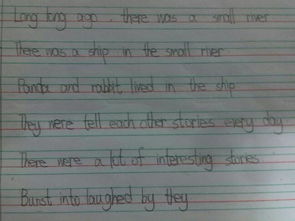 Long long ago, there was a small river
There was a ship in the small river
Panda and rabbit lived in the ship
They were tell each other stories every day
There were a lot of interesting stories
Burst into laughed by they